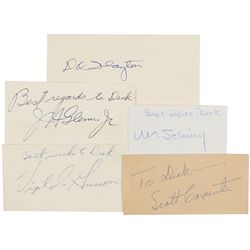 D K Slayton
Best regards to Dick
J H Glenn Jr.
Best wishes, Dick
Best wishes to Dick
Virgil I. Grissom
To Dick
Scott Carpenter